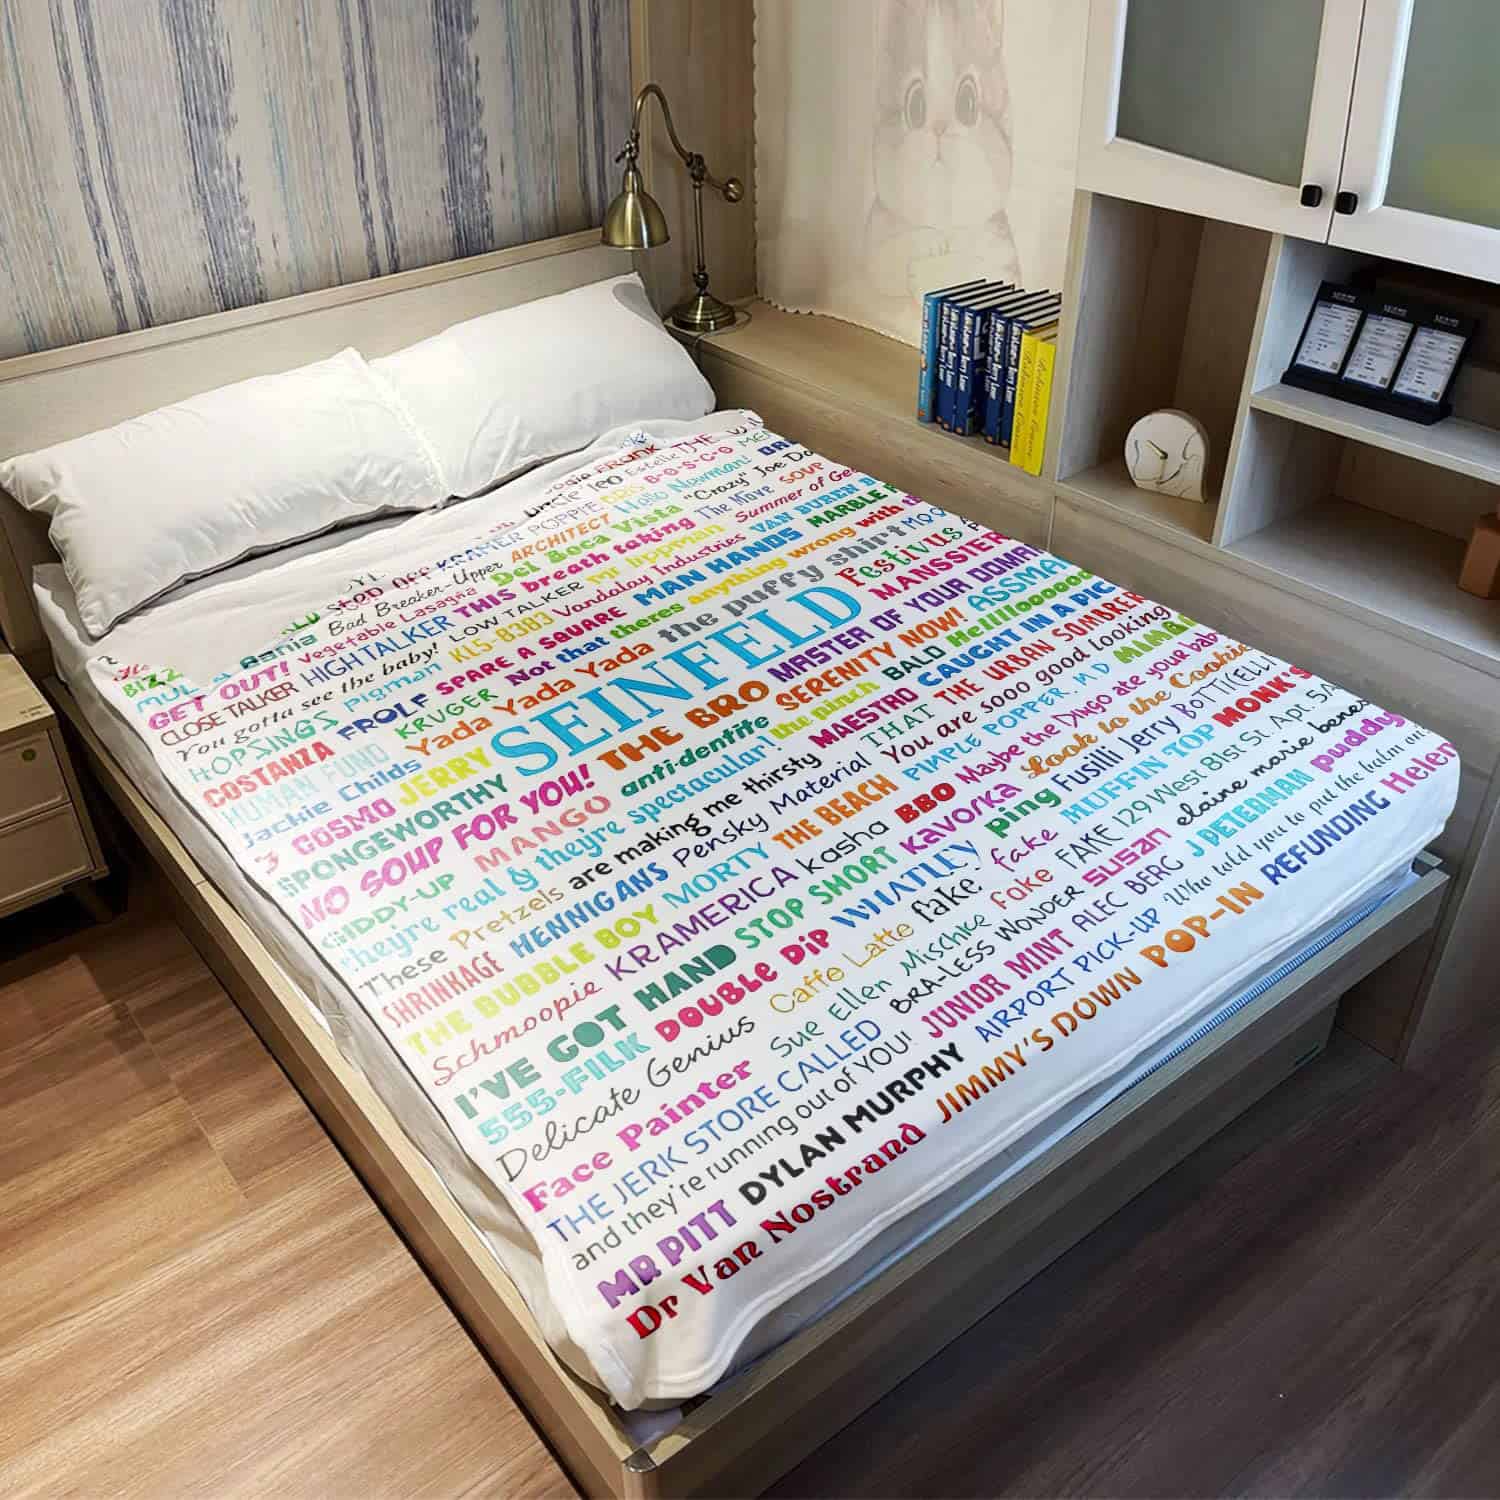 FRANK Estelle THE
Uncle leo B-O-S-C-O
POPPIE DRS Hello Newman!
KRAMER ARCHITECT Vista "Crazy" Joe
Stop Off Bad Breaker-Upper Del Boca The Move SOUP
Bania Vegetable Lasagna THIS breath taking Summer of
GET OUT! HIGH TALKER LOW TALKER mr lippman VAN BUREN
CLOSE TALKER KL5-8383 Vandalay Industries MARBLE
You gotta see the baby! SPARE A SQUARE MAN HANDS
HOP SING'S Pigman Not that theres anything wrong with
COSTANZA FROLF KRUGER the puffy shirt Festivus
HUMAN FUND Yada Yada Yada MANSSIER
Jackie Childs JERRY SEINFELD MASTER OF YOUR
3 COSMO THE BRO SERENITY NOW! ASSMAN
SPONGEWORTHY anti-dentite the pinch BALD Hellloooooo
NO SOUP FOR YOU! MAESTRO CAUGHT IN A PIC
GIDDY-UP MANGO THAT THE URBAN SOMBRERO
they're real & they're spectacular! You are sooo good looking
These Pretzels are making me thirsty PIMPLE POPPER. M D
SHRINKAGE HENNIGANS Pensky Material THE BEACH Maybe the Dingo ate your baby
THE BUBBLE BOY MORTY kasha BBO Look to the Cookie
Schmoopie KRAMERICA STOP SHORT Kavorka ping Fusilli Jerry BOTTICELLI
I'VE GOT HAND WHATLEY fake MUFFIN TOP MONK'S
555-FILK DOUBLE DIP fake FAKE 129 West 81st St. Apt. 5A
Delicate Genius Caffe Latte Mischke fake susan elaine marie benes
Face Painter Sue Ellen BRA-LESS WONDER ALEC BERG J PETERMAN puddy
THE JERK STORE CALLED JUNIOR MINT Who told you to put the balm on?
and they're running out of YOU! AIRPORT PICK-UP POP-IN REFUNDING Helen
MR PITT DYLAN MURPHY JIMMY'S DOWN
Dr Van Nostrand